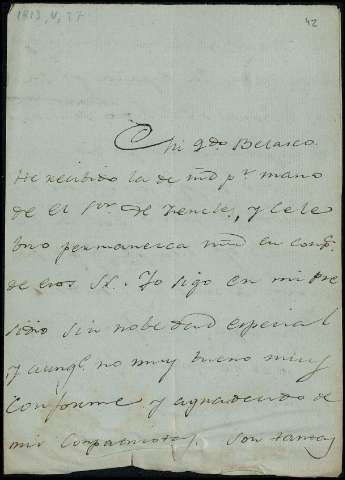 1813, V, 27
42
Mi qdo Belasco.
He recibido la de md pr mano
de el Sor. de Yencle, y cele
bro permanesca md en comp.
de esos SS. Yo sigo en mi pre
sidio sin nobedad especial
y aunq. no muy bueno muy
conforme y agradecido de
mis Compatriotas. Son tantas